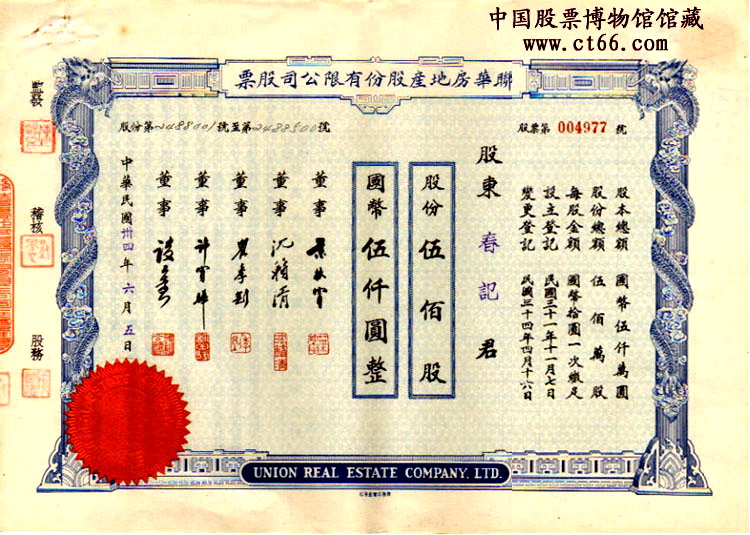 中国股票博物馆馆藏
www.ct66.com
聯華房地產股份有限公司股票
股票第 004977 號
股份第2488001號至第2488500號
股本總額 國幣伍仟萬圓
股份總額 伍佰萬股
每股金額 國幣拾圓一次繳足
設立登記 民國三十一年十一月七日
變更登記 民國三十四年四月十六日
股東 春記 君
股份伍佰股
國幣伍仟圓整
董事
董事 沈籟清
董事
董事
董事
中華民國卅四年六月五日
監發
稽核
股務
UNION REAL ESTATE COMPANY, LTD.